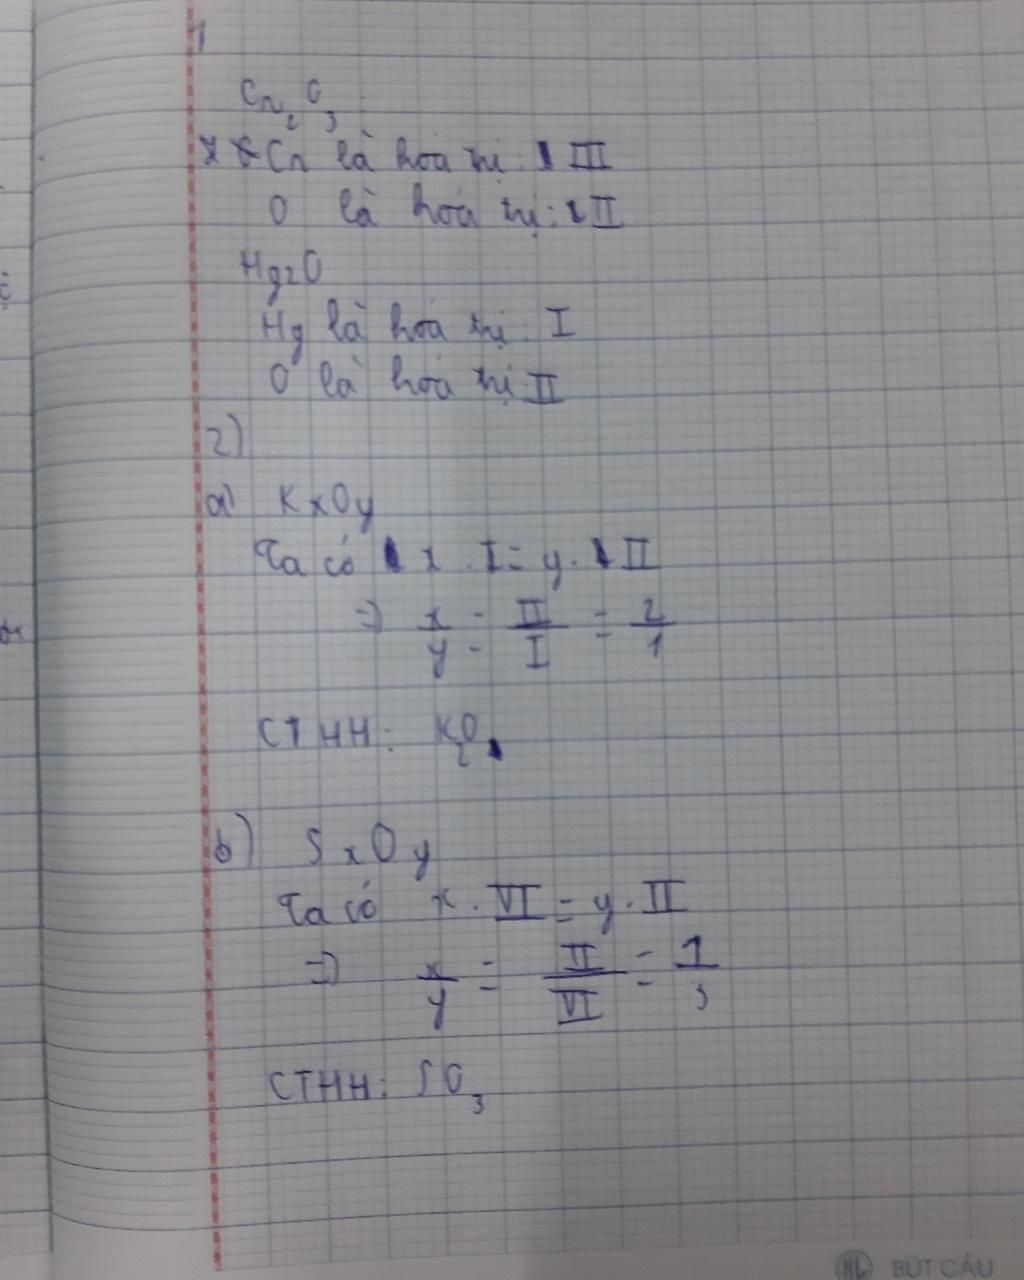 1
Cr₂O₃
Cr là hóa trị: III
O là hóa trị: II
Hg2O
Hg là hóa trị: I
O là hóa trị: II
2)
a) KxOy
Ta có x . I = y . II
=> x/y = II/I = 2/1
CTHH: K₂O
b) SxOy
Ta có x . VI = y . II
=> x/y = II/VI = 1/3
CTHH: SO₃
HL BÚT CÂU